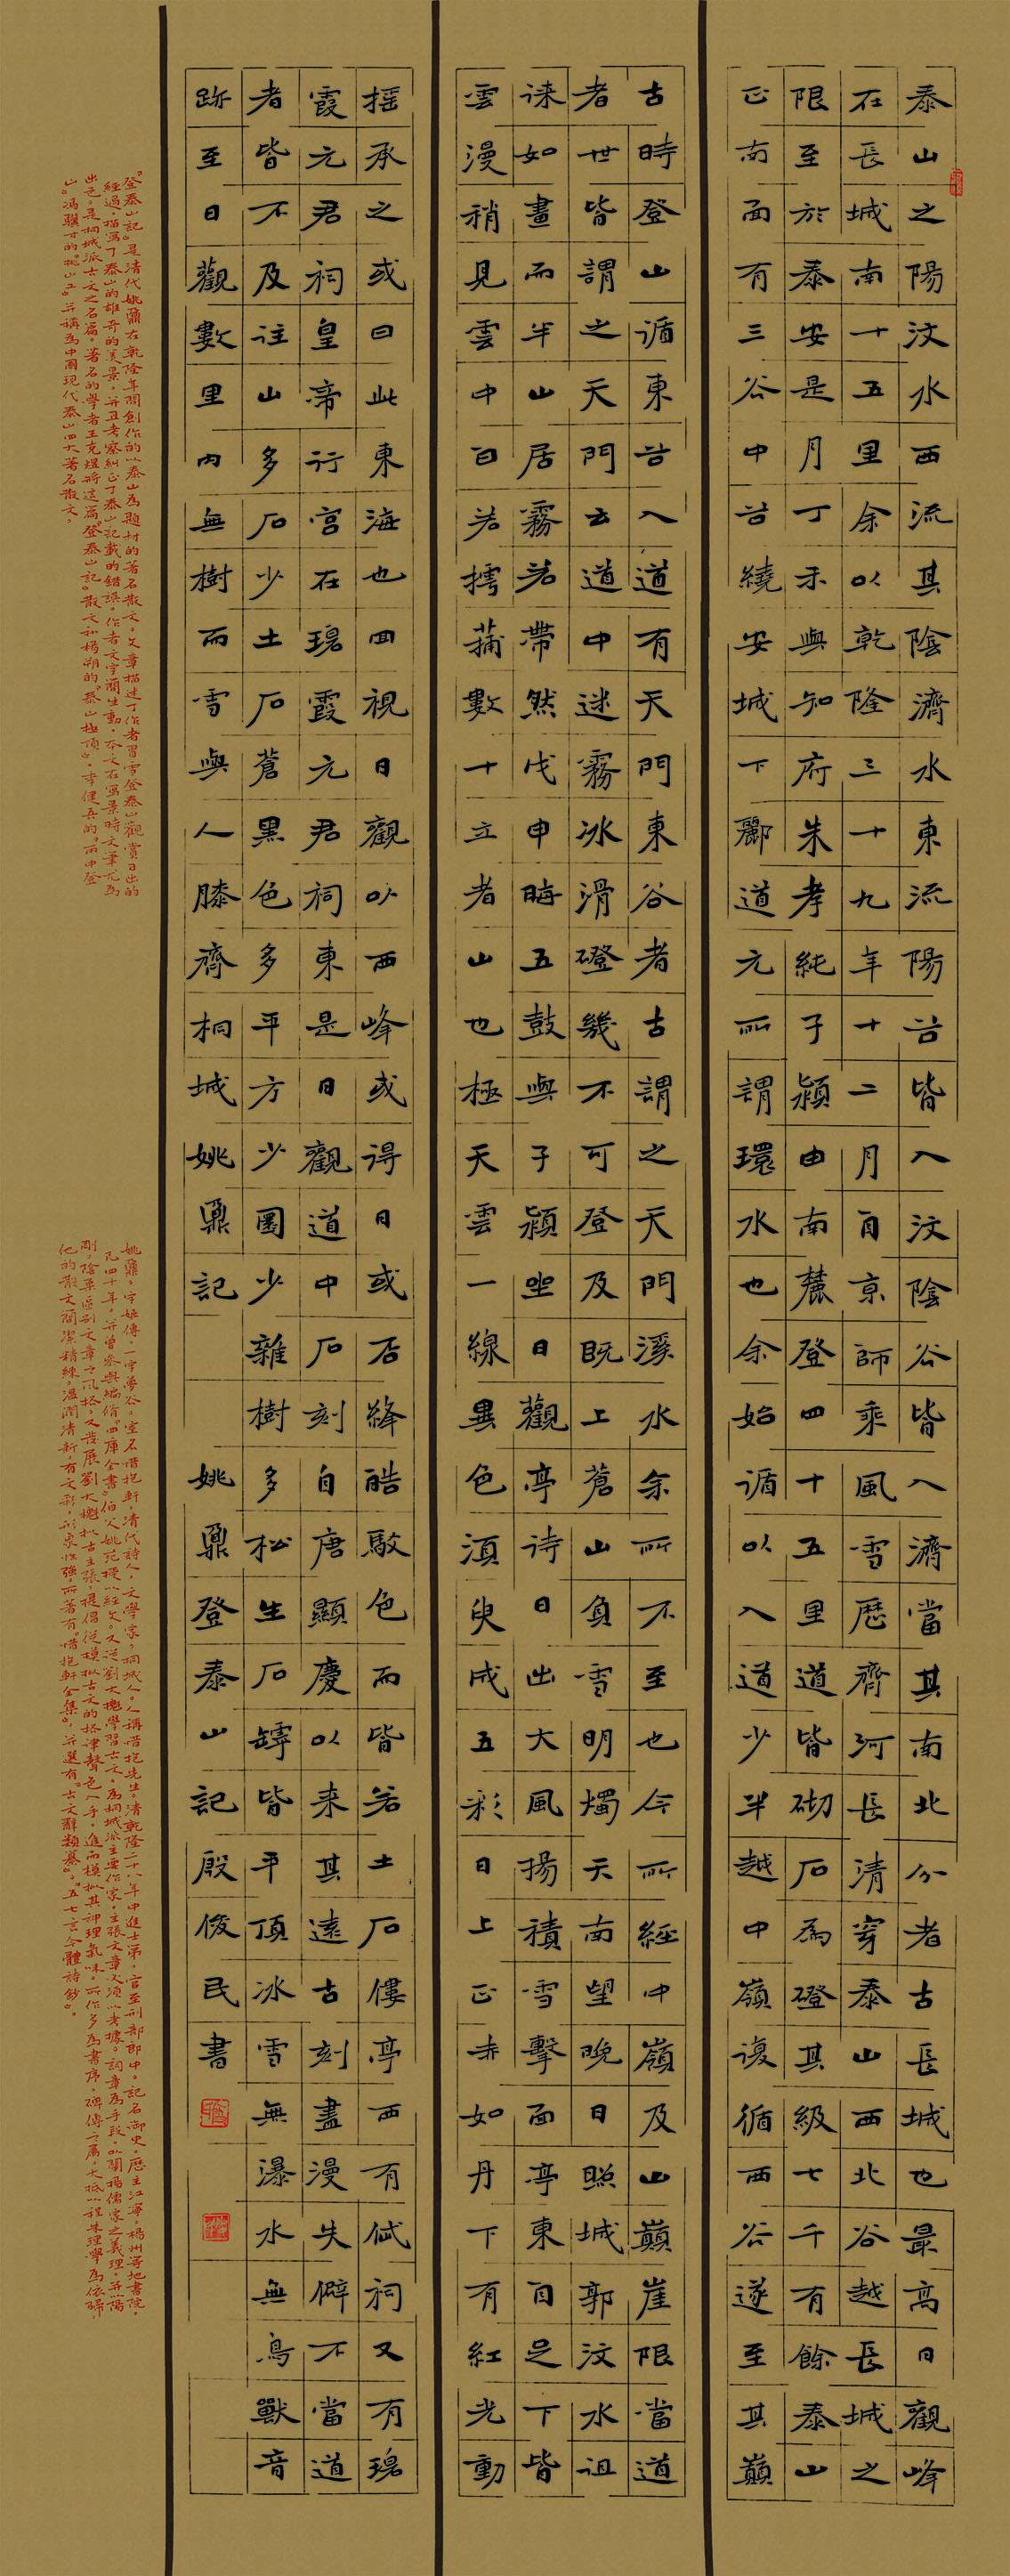 泰山之陽汶水西流其陰濟水東流陽谷皆入汶陰谷皆入濟當其南北分者古長城也最高日觀峰
在長城南十五里余以乾隆三十九年十二月自京師乘風雪歷齊河長清穿泰山西北谷越長城之
限至於泰安是月丁未與知府朱孝純子潁由南麓登四十五里道皆砌石為磴其級七千有餘泰山
正南面有三谷中谷繞安城下酈道元所謂環水也余始循以入道少半越中嶺復循西谷遂至其巔
古時登山循東谷入道有天門東谷者古謂之天門溪水余所不至也今所經中嶺及山巔崖限當道
者世皆謂之天門云道中迷霧冰滑磴幾不可登及既上蒼山負雪明燭天南望晚日照城郭汶水徂
徠如畫而半山居霧若帶然戊申晦五鼓與子潁坐日觀亭待日出大風揚積雪擊面亭東自足下皆
雲漫稍見雲中白若摴蒱數十立者山也極天雲一線異色須臾成五彩日上正赤如丹下有紅光動
搖承之或曰此東海也回視日觀以西峰或得日或否絳皓駁色而皆若土石僂亭西有岱祠又有碧
霞元君祠皇帝行宮在碧霞元君祠東是日觀道中石刻自唐顯慶以來其遠古刻盡漫失僻不當道
者皆不及往山多石少土石蒼黑色多平方少圜少雜樹多松生石罅皆平頂冰雪無瀑水無鳥獸音
跡至日觀數里內無樹而雪與人膝齊桐城姚鼐記 姚鼐登泰山記殷俊民書
"登泰山記"是清代姚鼐在乾隆年間創作的以泰山為題材的著名散文。文章描述了作者冒雪登泰山觀賞日出的
經過，描寫了泰山的雄奇的美景，并且考察糾正了泰山記載的錯誤。作者文字簡生動，本文在寫景時文筆尤為
出色，是桐城派古文之名篇。著名的學者王克煜將這篇"登泰山記"散文和楊朔的"泰山極頂"、李健吾的"雨中登
山"、馮驥才的"挑山工"并稱為中國現代泰山四大著名散文。
姚鼐，字姬傳，一字夢谷，室名惜抱軒，清代詩人，文學家，桐城人。人稱惜抱先生。清乾隆二十八年中進士第，官至刑部郎中。記名御史。歷主江寧，楊州等地書院，
凡四十年，并曾參與編修"四庫全書"。伯父姚范授以經文。又從劉大櫆學習古文。為桐城派主要作家，主張文章必須以考據。詞章為手段，以闡揚儒家之義理，并以陽
剛，陰柔區別文章之風格，又發展劉大櫆擬古主張，提倡從模擬古文的格律聲色入手，進而模擬其神理氣味。所作多為書序，碑傳之屬，大抵以程朱理學為依歸，
他的散文簡潔精練，溫潤清新，有文彩，形象性強，所著有"惜抱軒全集"，并選有"古文辭類纂"，"五七言今體詩鈔"。